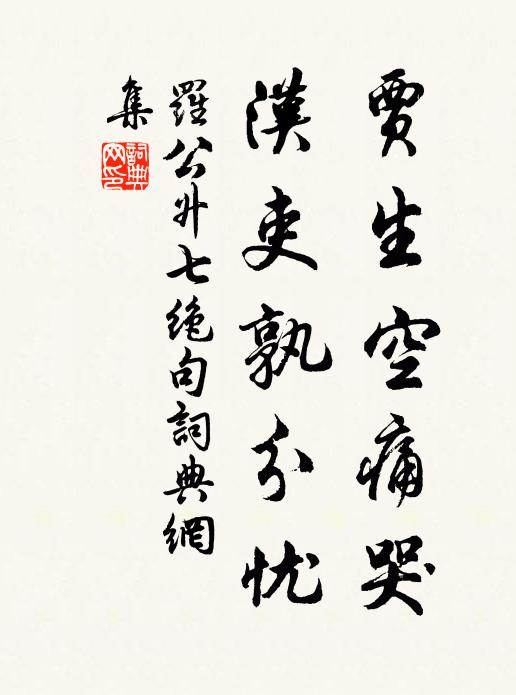 賈生空痛哭
漢吏孰分忧
羅公升七絶句詞典網
集
詞典網印